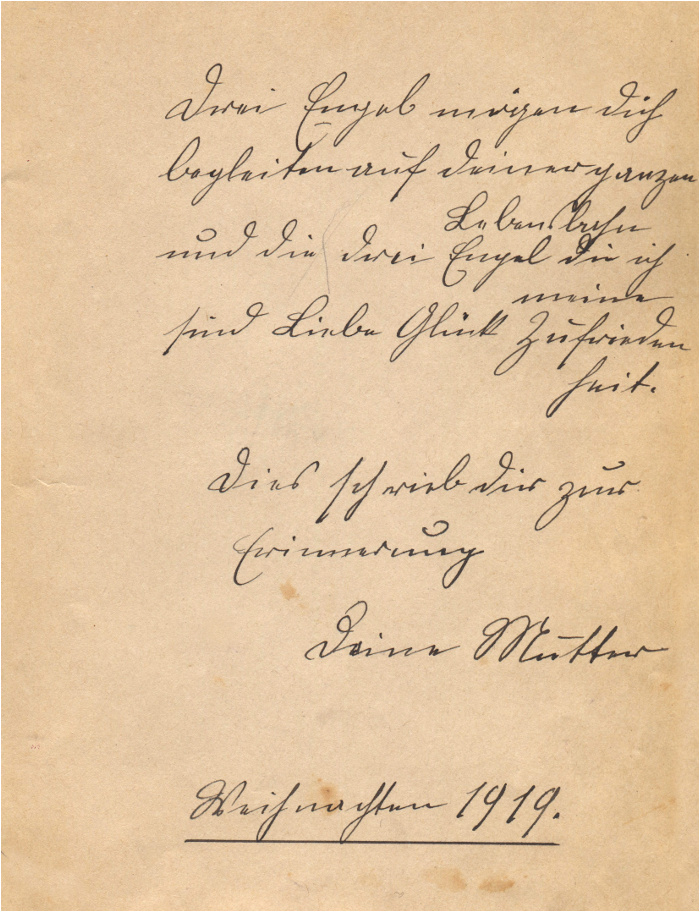 Drei Engel mögen dich
begleiten auf deiner ganzen
Lebensbahn
und die drei Engel die ich
meine
sind Liebe Glück Zufrieden
heit.
Dies schrieb dir zur
Erinnerung
Deine Mutter
Weihnachten 1919.